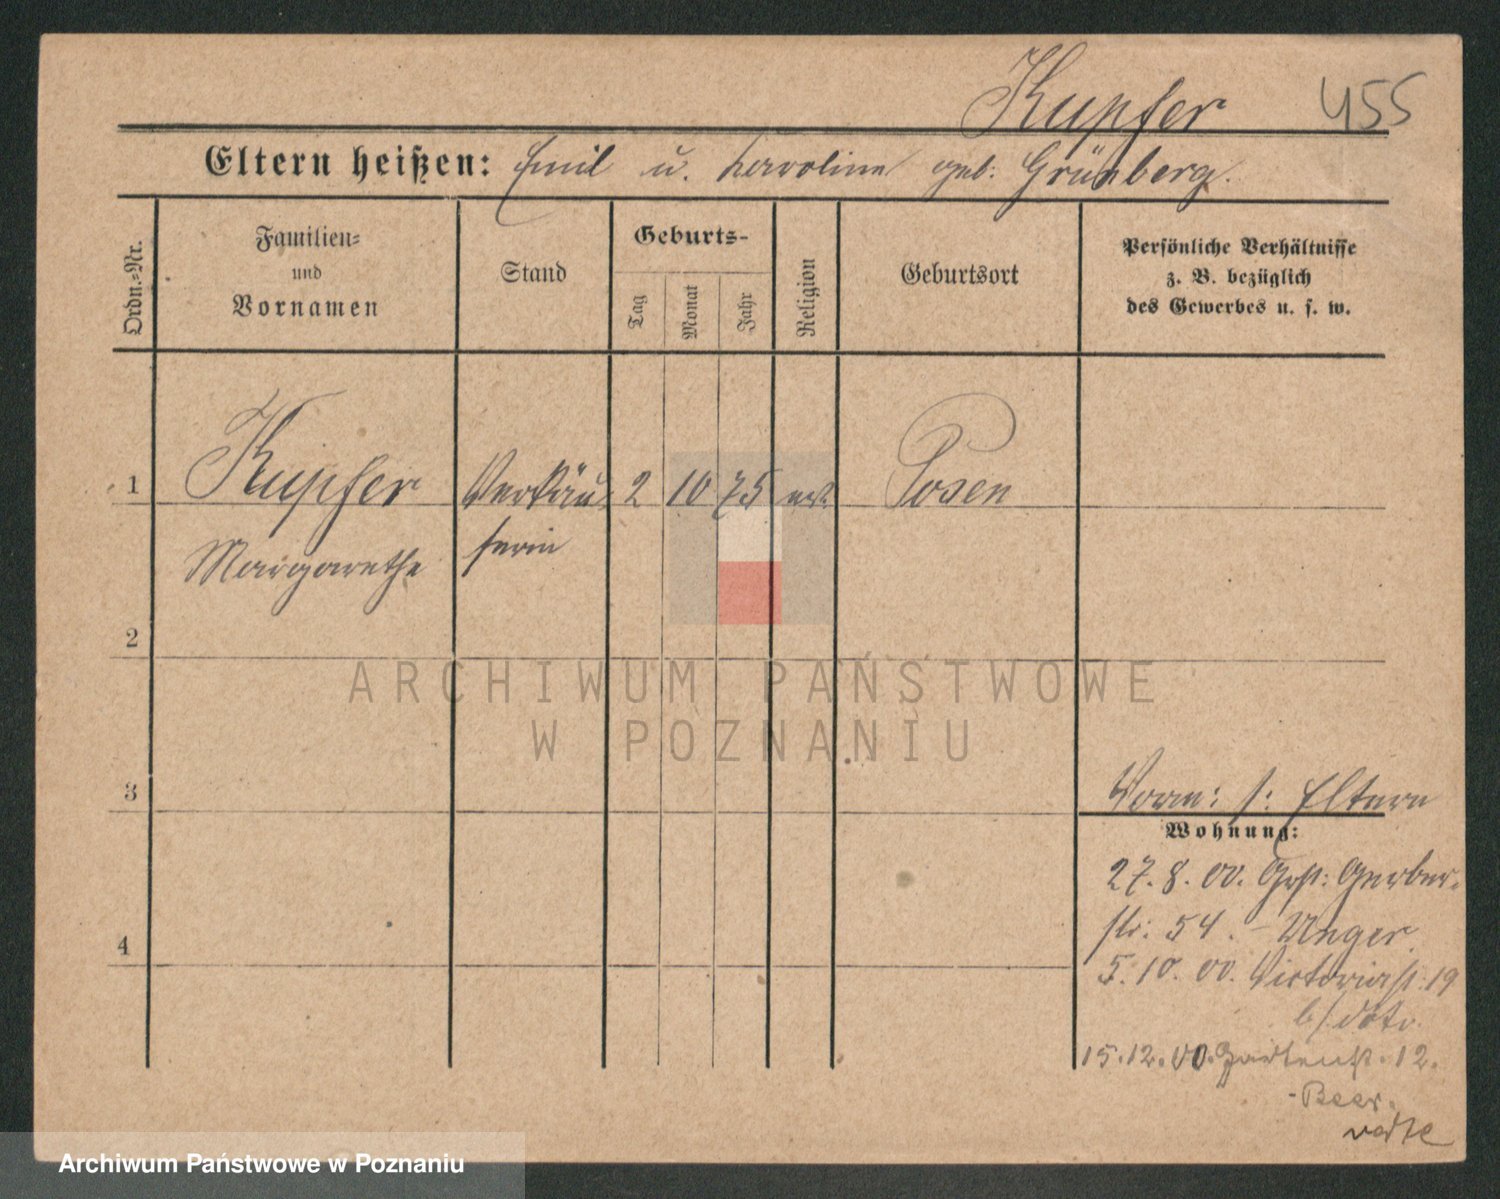 Kupfer 455
Eltern heißen: Emil u. Karoline geb: Grünberg.
Ordn.=Nr.
Familien=
und
Vornamen
Stand
Geburts-
Tag
Monat
Jahr
Religion
Geburtsort
Persönliche Verhältnisse
z. B. bezüglich
des Gewerbes u. s. w.
1 Kupfer Verkäu 2 10 75 Posen
Margarethe ferin
2
ARCHIWUM PAŃSTWOWE
W POZNANIU
3
Vorm: s: Eltern
Wohnung:
27. 8. 00. Gerber-
str: 54. - Unger.
4
5. 10. 00. Victoriast: 19
b/
15. 12. 00. Gartenst. 12.
- Beer.
Archiwum Państwowe w Poznaniu